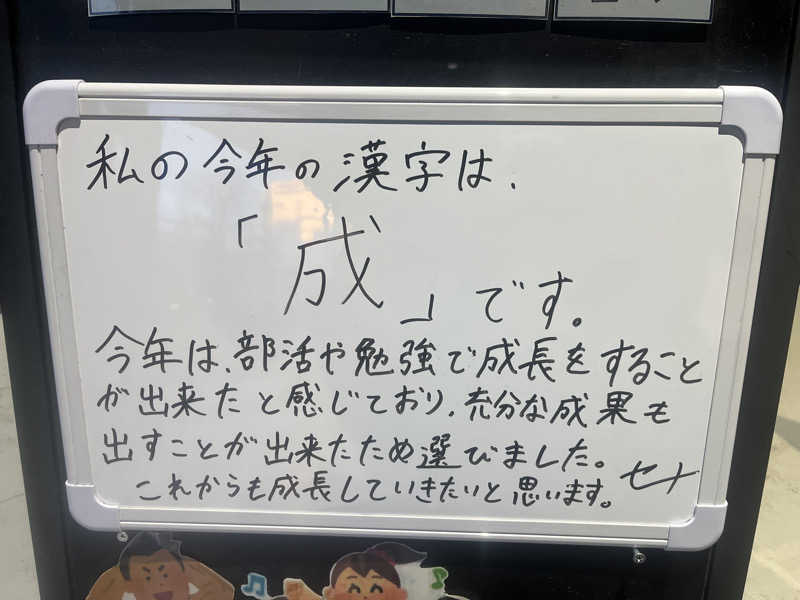 私の今年の漢字は、
「成」です。
今年は、部活や勉強で成長をすること
が出来たと感じており、充分な成果も
出すことが出来たため選びました。
これからも成長していきたいと思います。セナ